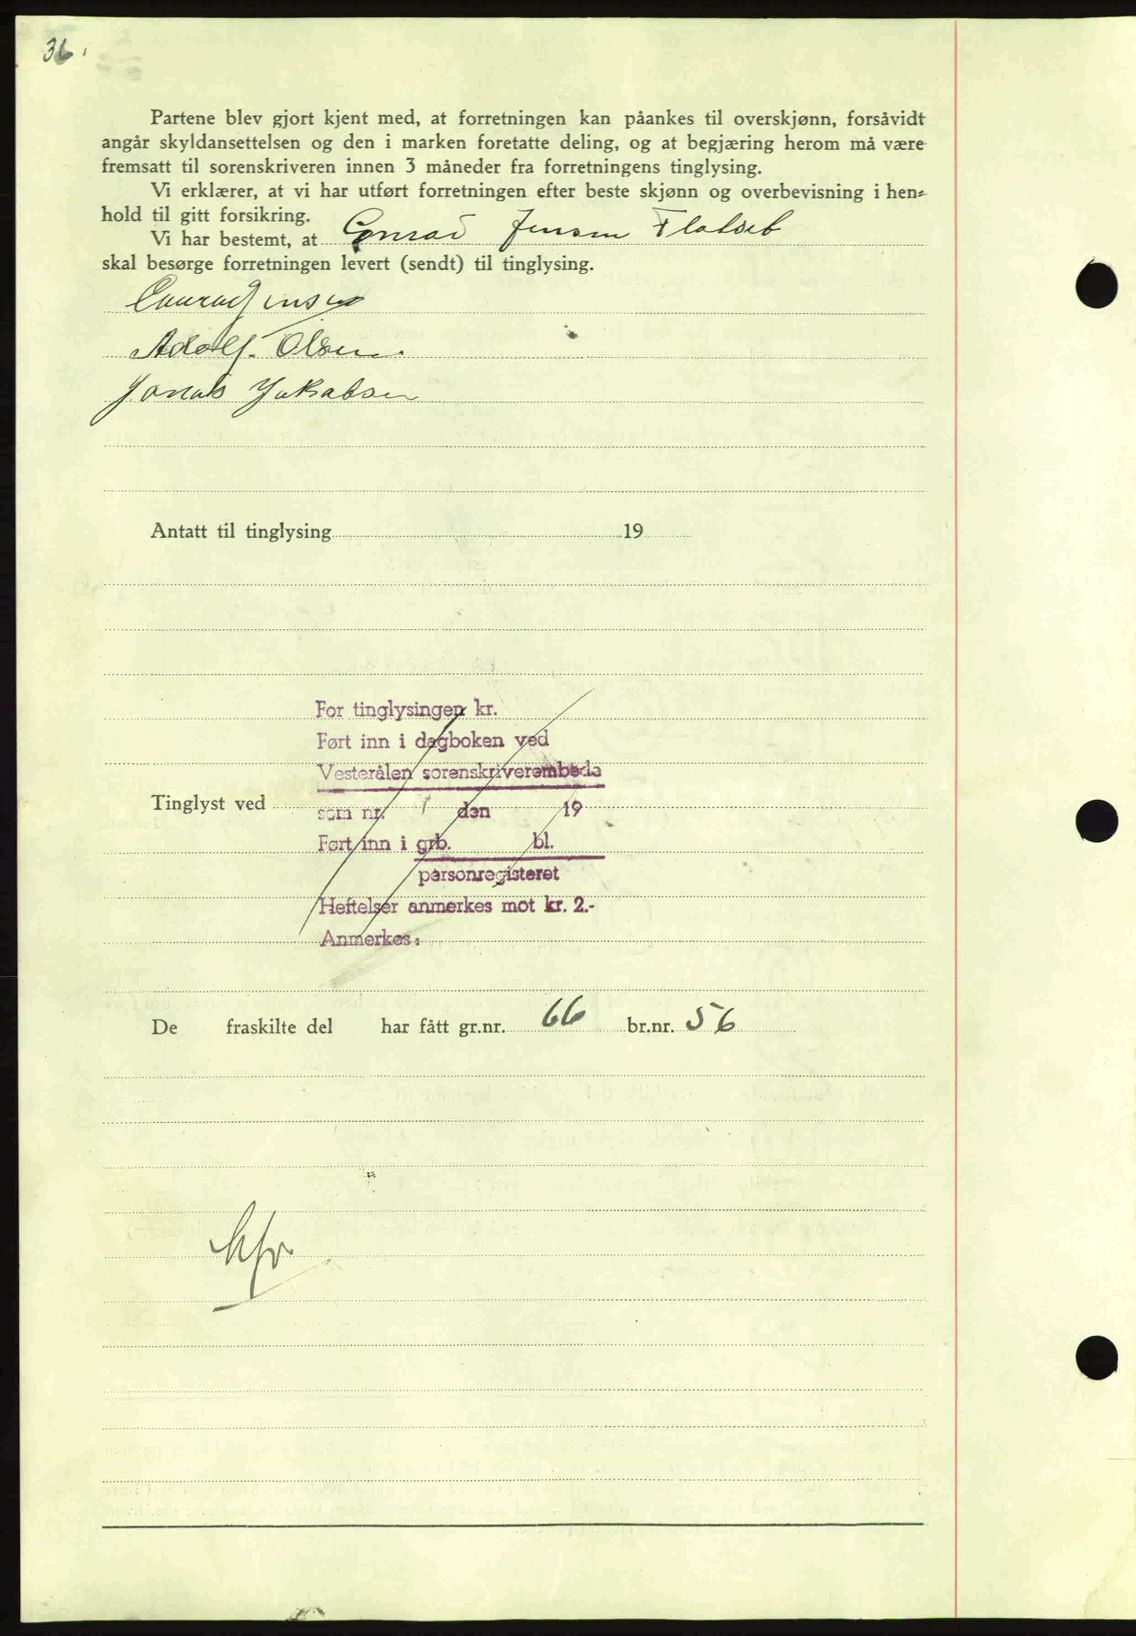 36.
Partene blev gjort kjent med, at forretningen kan påankes til overskjønn, forsåvidt
angår skyldansettelsen og den i marken foretatte deling, og at begjæring herom må være
fremsatt til sorenskriveren innen 3 måneder fra forretningens tinglysing.
Vi erklærer, at vi har utført forretningen efter beste skjønn og overbevisning i hen-
hold til gitt forsikring.
Vi har bestemt, at Conrad Jensen Flatset
skal besørge forretningen levert (sendt) til tinglysing.
Conrad Jensen
Adolf Olsen.
Jonas Jakobsen
Antatt til tinglysing 19
For tinglysingen kr.
Ført inn i dagboken ved
Vesterålen sorenskriverembede
Tinglyst ved som nr. den 19
Ført inn i grb. bl.
personregisteret
Heftelser anmerkes mot kr. 2.-
Anmerkes:
De fraskilte del har fått gr.nr. 66 br.nr. 56